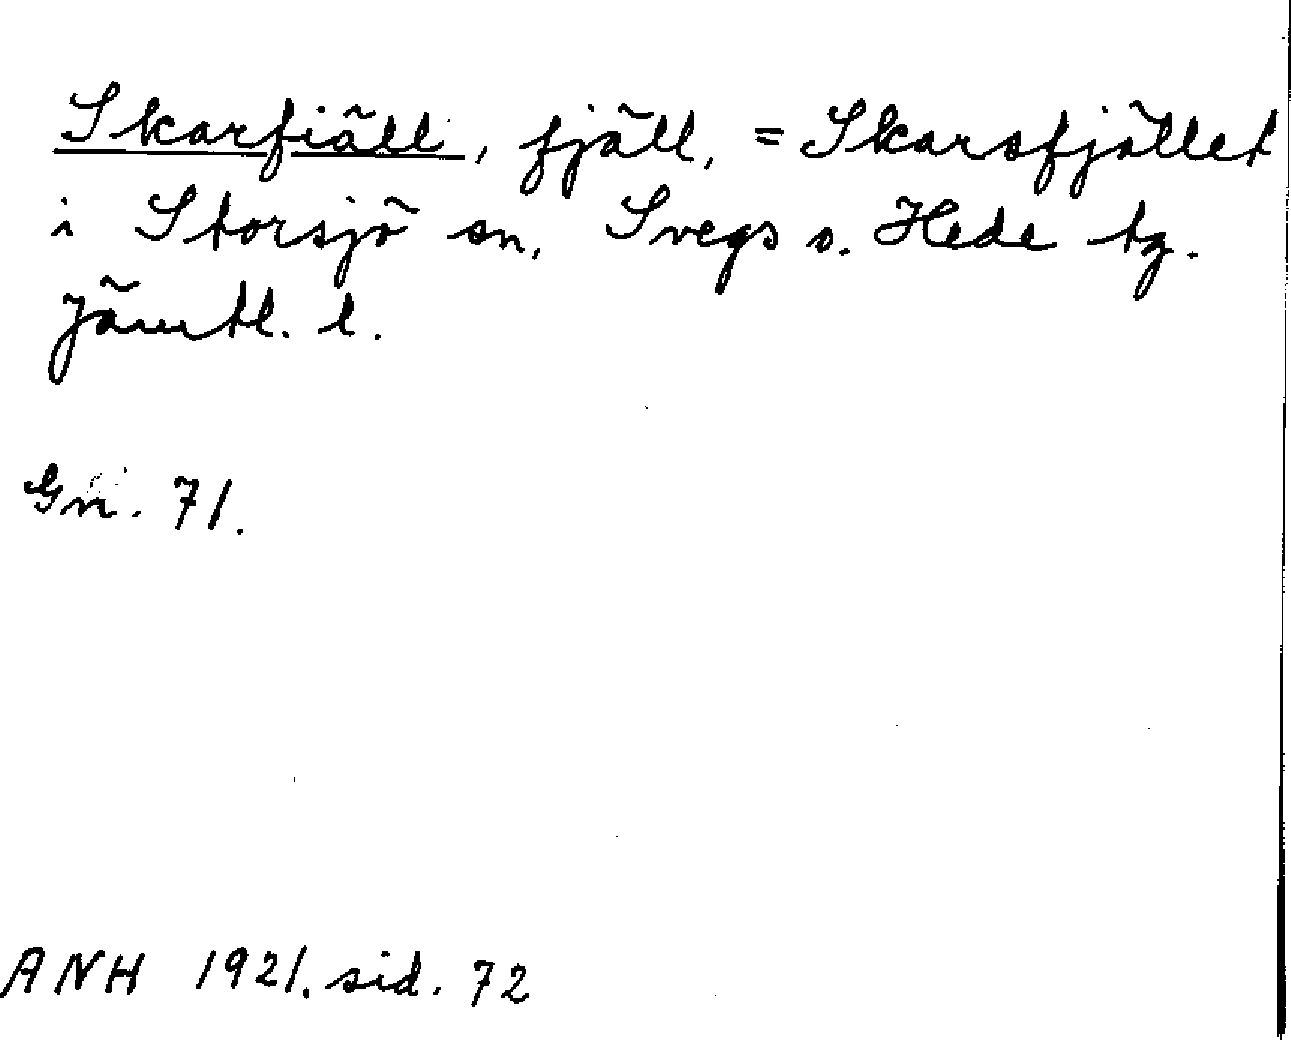 Skarfiäll, fjäll, = Skarsfjället
i Storsjö sn, Svegs o. Hede tg.
Jämtl. l.
Gn. 71.
ANH 1921. sid. 72